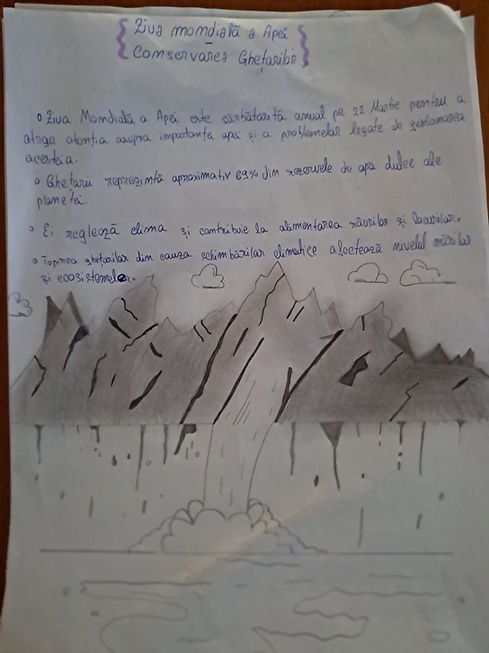 Ziua mondială a Apei
Conservarea Ghețarilor
Ziua Mondială a Apei este sărbătorită anual pe 22 Martie pentru a
atrage atenția asupra importanța apei și a problemelor legate de gestionarea
acesteia.
Ghețaru reprezintă aproximativ 69% din rezervele de apă dulce ale
planetei.
Ei reglează clima și contribuie la alimentarea râurilor și lacurilor.
Topirea ghețarilor din cauza schimbărilor climatice afectează nivelul mărilor
și ecosistemelor.